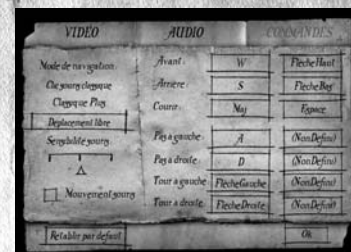 VIDÉO AUDIO COMMANDES
Mode de navigation:
Clic souris classique
Classique Plus
Déplacement libre
Sensibilité souris
Mouvement souris
Avant: W Flèche Haut
Arrière: S Flèche Bas
Courir: Maj Espace
Pas à gauche: A (Non Défini)
Pas à droite: D (Non Défini)
Tour à gauche: Flèche Gauche (Non Défini)
Tour à droite: Flèche Droite (Non Défini)
Rétablir par défaut Ok